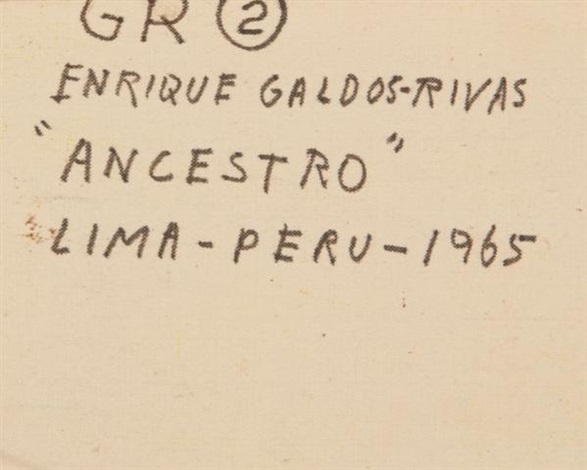 GR ②
ENRIQUE GALDOS-RIVAS
"ANCESTRO"
LIMA - PERU - 1965